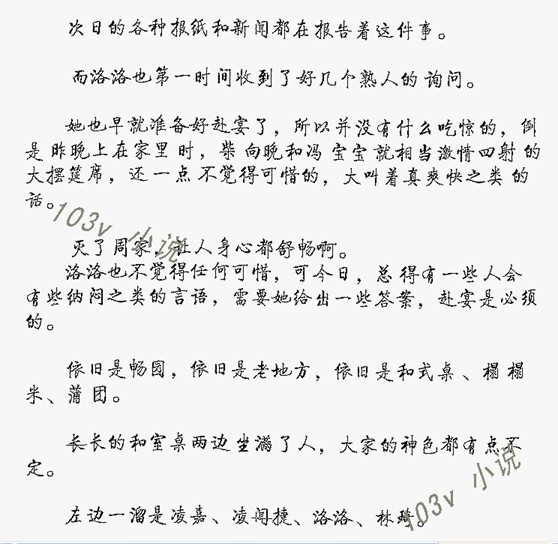 次日的各种报纸和新闻都在报告着这件事。
而洛洛也第一时间收到了好几个熟人的询问。
她也早就准备好赴宴了，所以并没有什么吃惊的，倒
是昨晚上在家里时，柴向晚和冯宝宝就相当激情四射的
大摆筵席，还一点不觉得可惜的，大叫着真爽快之类的
话。
103v 小说
灭了周家，让人身心都舒畅啊。
洛洛也不觉得任何可惜，可今日，总得有一些人会
有些纳闷之类的言语，需要她给出一些答案，赴宴是必须
的。
依旧是畅园，依旧是老地方，依旧是和式桌、榻榻
米、蒲团。
长长的和室桌两边坐满了人，大家的神色都有点不
定。
103v 小说
左边一溜是凌嘉、凌闻捷、洛洛、林